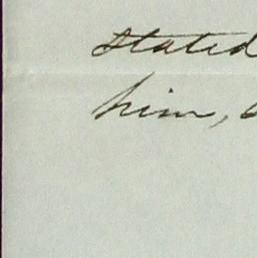 stated
him,